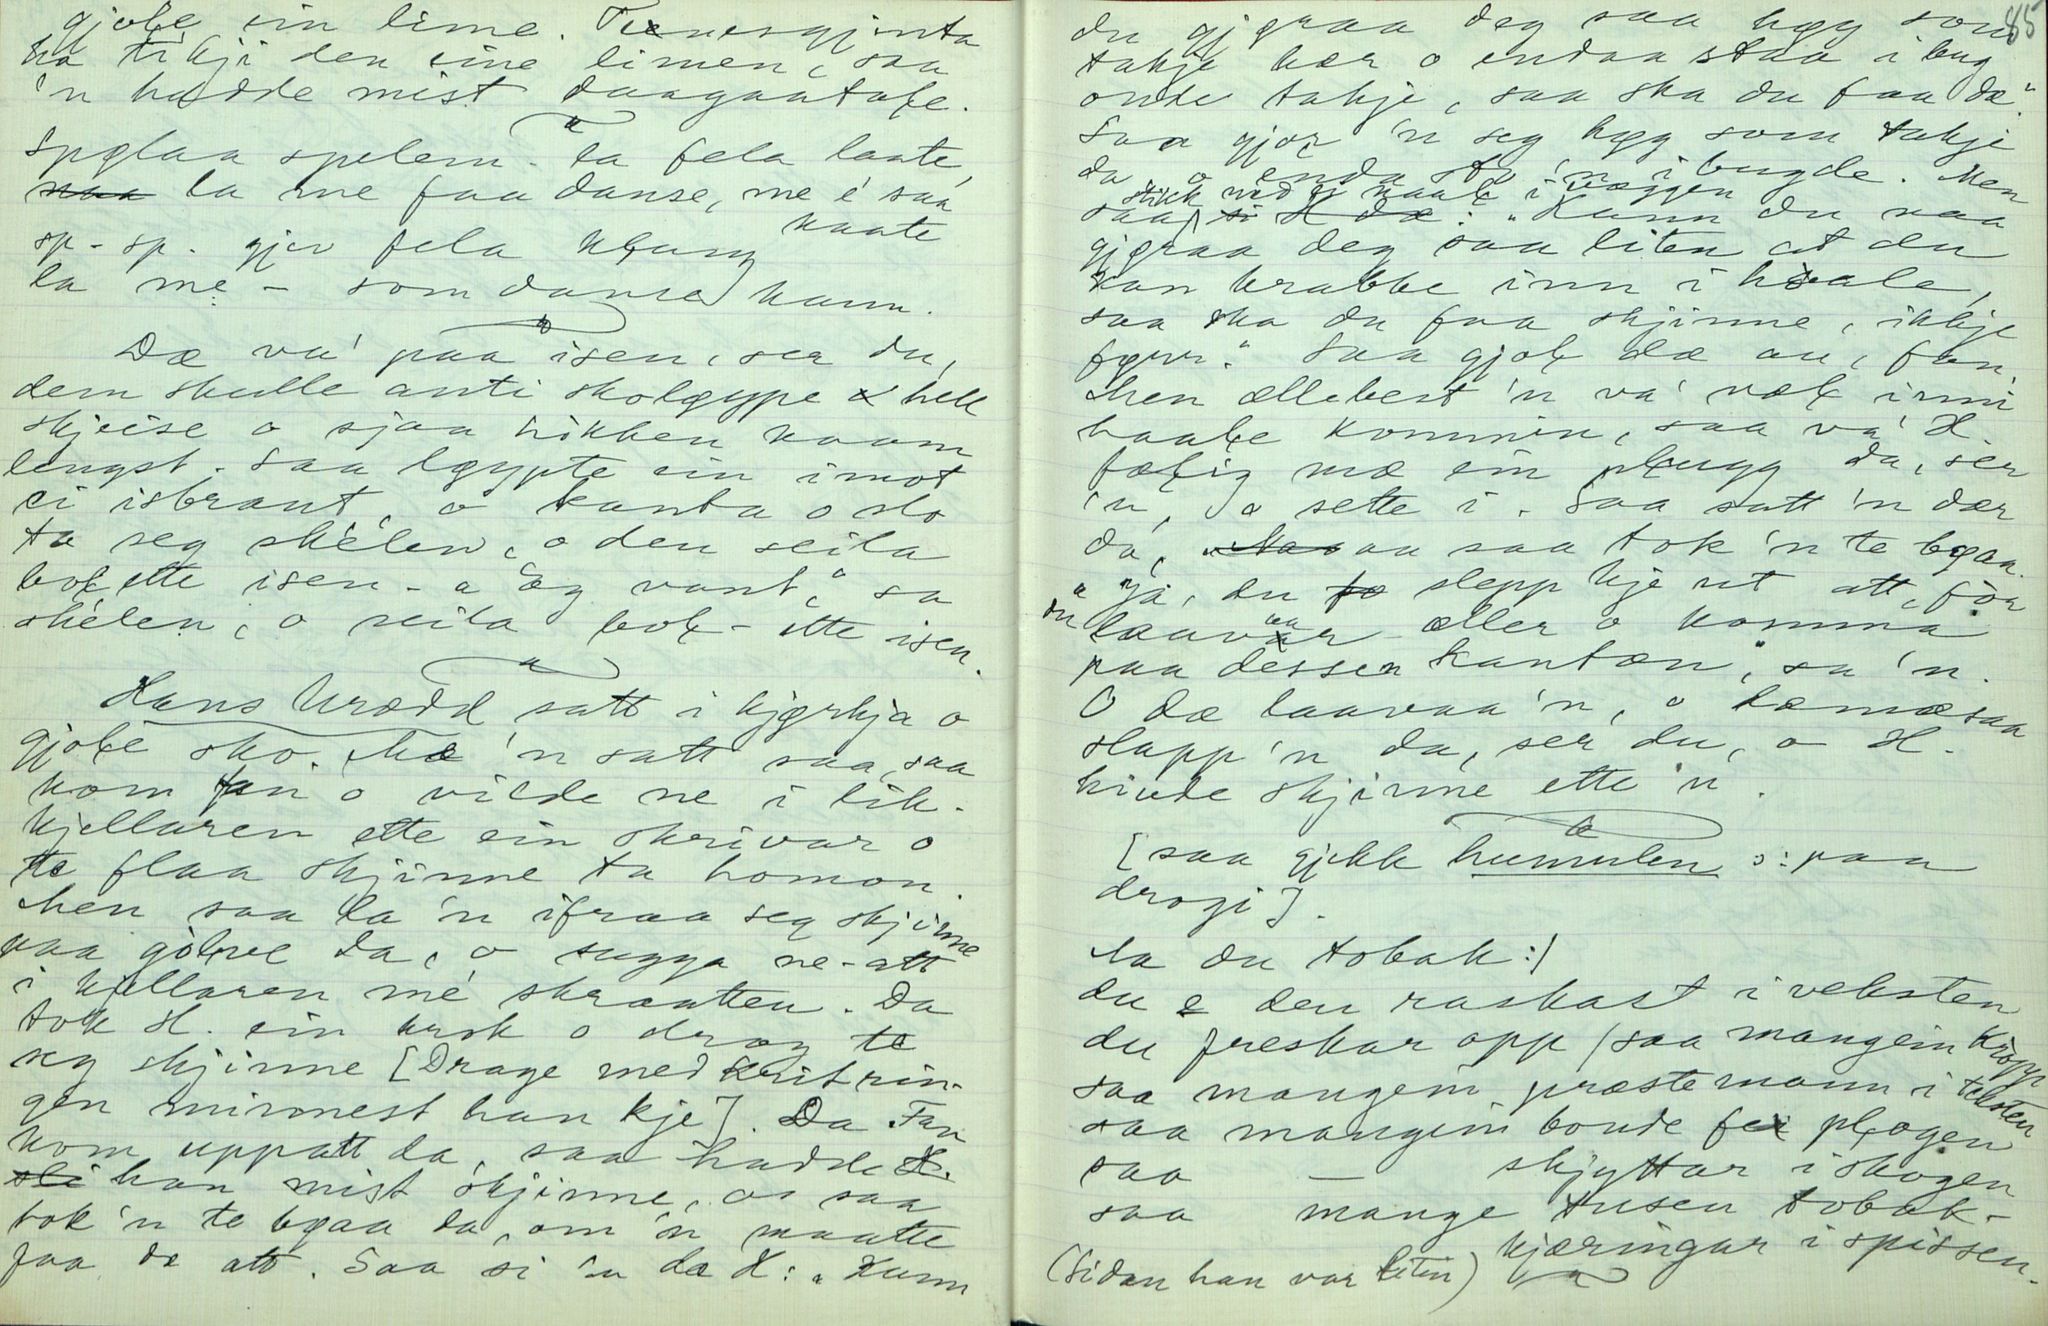 gjole ein lime. Tenesgjenta
ha tikji den eine limen, saa
'n hadde mist daagaatale.
Spølaa spelem. la fela laate,
la me faa danse, me é saa
kaate
sp- sp. gjev fela klang
la me - som danse kann.
Dæ va' paa isen, ser du,
dem skulle anti skoløype hell
skjeise o sjaa kikken kaam
lengst. Saa løypte ein imot
ei isbrant, o kanta o slo
ta seg skélen, o den seila
bol ette isen - o "eg vant," sa
skélen, o seila bol - ette isen.
Hans Urædd satt i kjørkja o
gjole sko. Mæ 'n satt saa, saa
kom fan o vilde ne i lik-
kjellaren ette ein skrivar o
te flaa skjinne ta homon.
Men saa la 'n ifraa seg skjinne
paa golve da, o rugga ne-att
i kjellaren mé skrantten. Da
tok H. ein krok o drog te
seg skjinne [Drage med kritrin-
gen minnest han kje]. Da Fan
kom uppatt da, saa hadde
han mist skjinne, o saa
tok 'n te bøaa da, om 'n maatte
faa de att. Saa si 'n da H: "Kann
85
du gjøraa deg saa høg som
takje hær o endaa staa i bug
onde takje, saa ska du faa dæ".
Saa gjor 'n seg høg som takje
da o enda sto 'n i bugde. Men
stikk med ei naale i væggen
saa si H dæ: "Kann du naa
gjøraa deg saa liten at du
kan krabbe inn i hoale,
saa ska du faa skjinne, ikkje
førr." Saa gjole dæ au, fan,
Men ællebest 'n va' væl inni
haale kommin, saa va' H.
fælig mæ ein plugg da, ser
'n, o sette i. Saa satt 'n dær
da, aa saa tok 'n te bøaa.
"Ja, du slepp kje ut att, før
du laavaar æller o komma
paa dessen kantæn", sa 'n.
O dæ laavaa 'n, o dæmæsaa
slapp 'n da, ser du, o H.
hivde skjinne ette 'n.
[saa gjekk humulen ɔ: paa
drogi].
Aa du tobak :/
du e den raskast i veksten
du freskar opp saa mangein kropp
saa mangein præstemann i teksten
saa mangein bonde fe plogen
saa — skjyttar i skogen
saa mange tusen tobak-
kjæringar i spissen.
(Sidan han var liten)